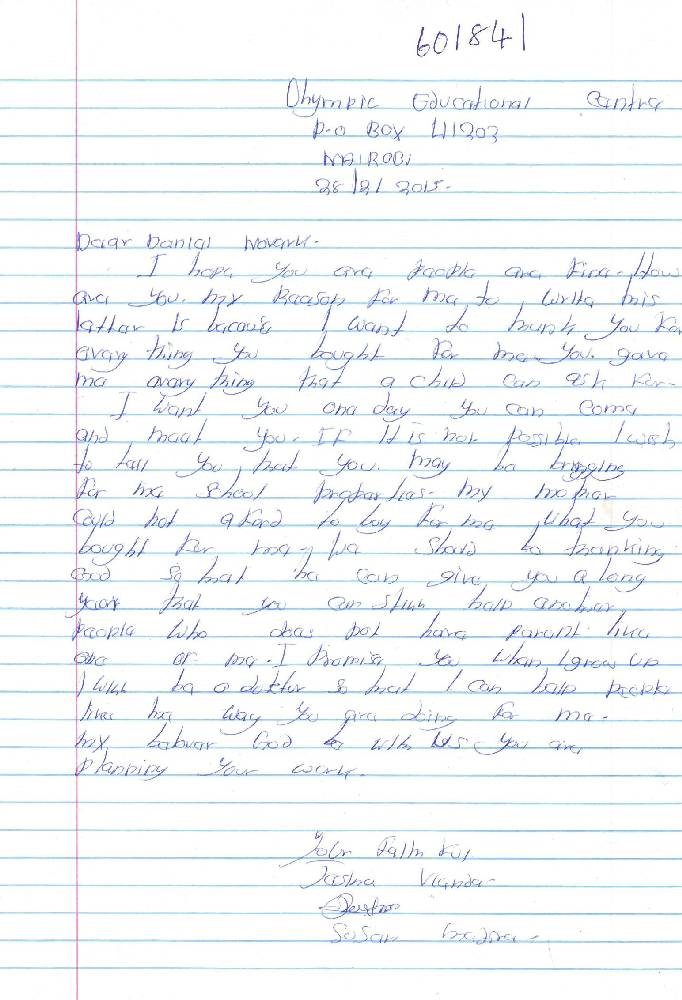 601841
Olympic Educational Centre
P.O BOX 41203
NAIROBI
28/2/2015.
Dear Danial Novark.
I hope you are people are fine. How
are you. my Reason for me to write this
latter is because I want to thank you for
every thing you bought for me. You gave
me every thing that a child can ask for.
I want you one day you can come
and meet you. IF it is not possible I wish
to tell you that you may be bringing
for me school properties. my mother
could not aford to buy for me what you
bought for me. We should be thanking
God so that he can give you a long
years that you can still help another
people who does not have parent like
one of me. I Promise you when I grow up
I will be a doktor so that I can help people
like the way you are doing for me.
my God be with us you are
planning your work.
Your